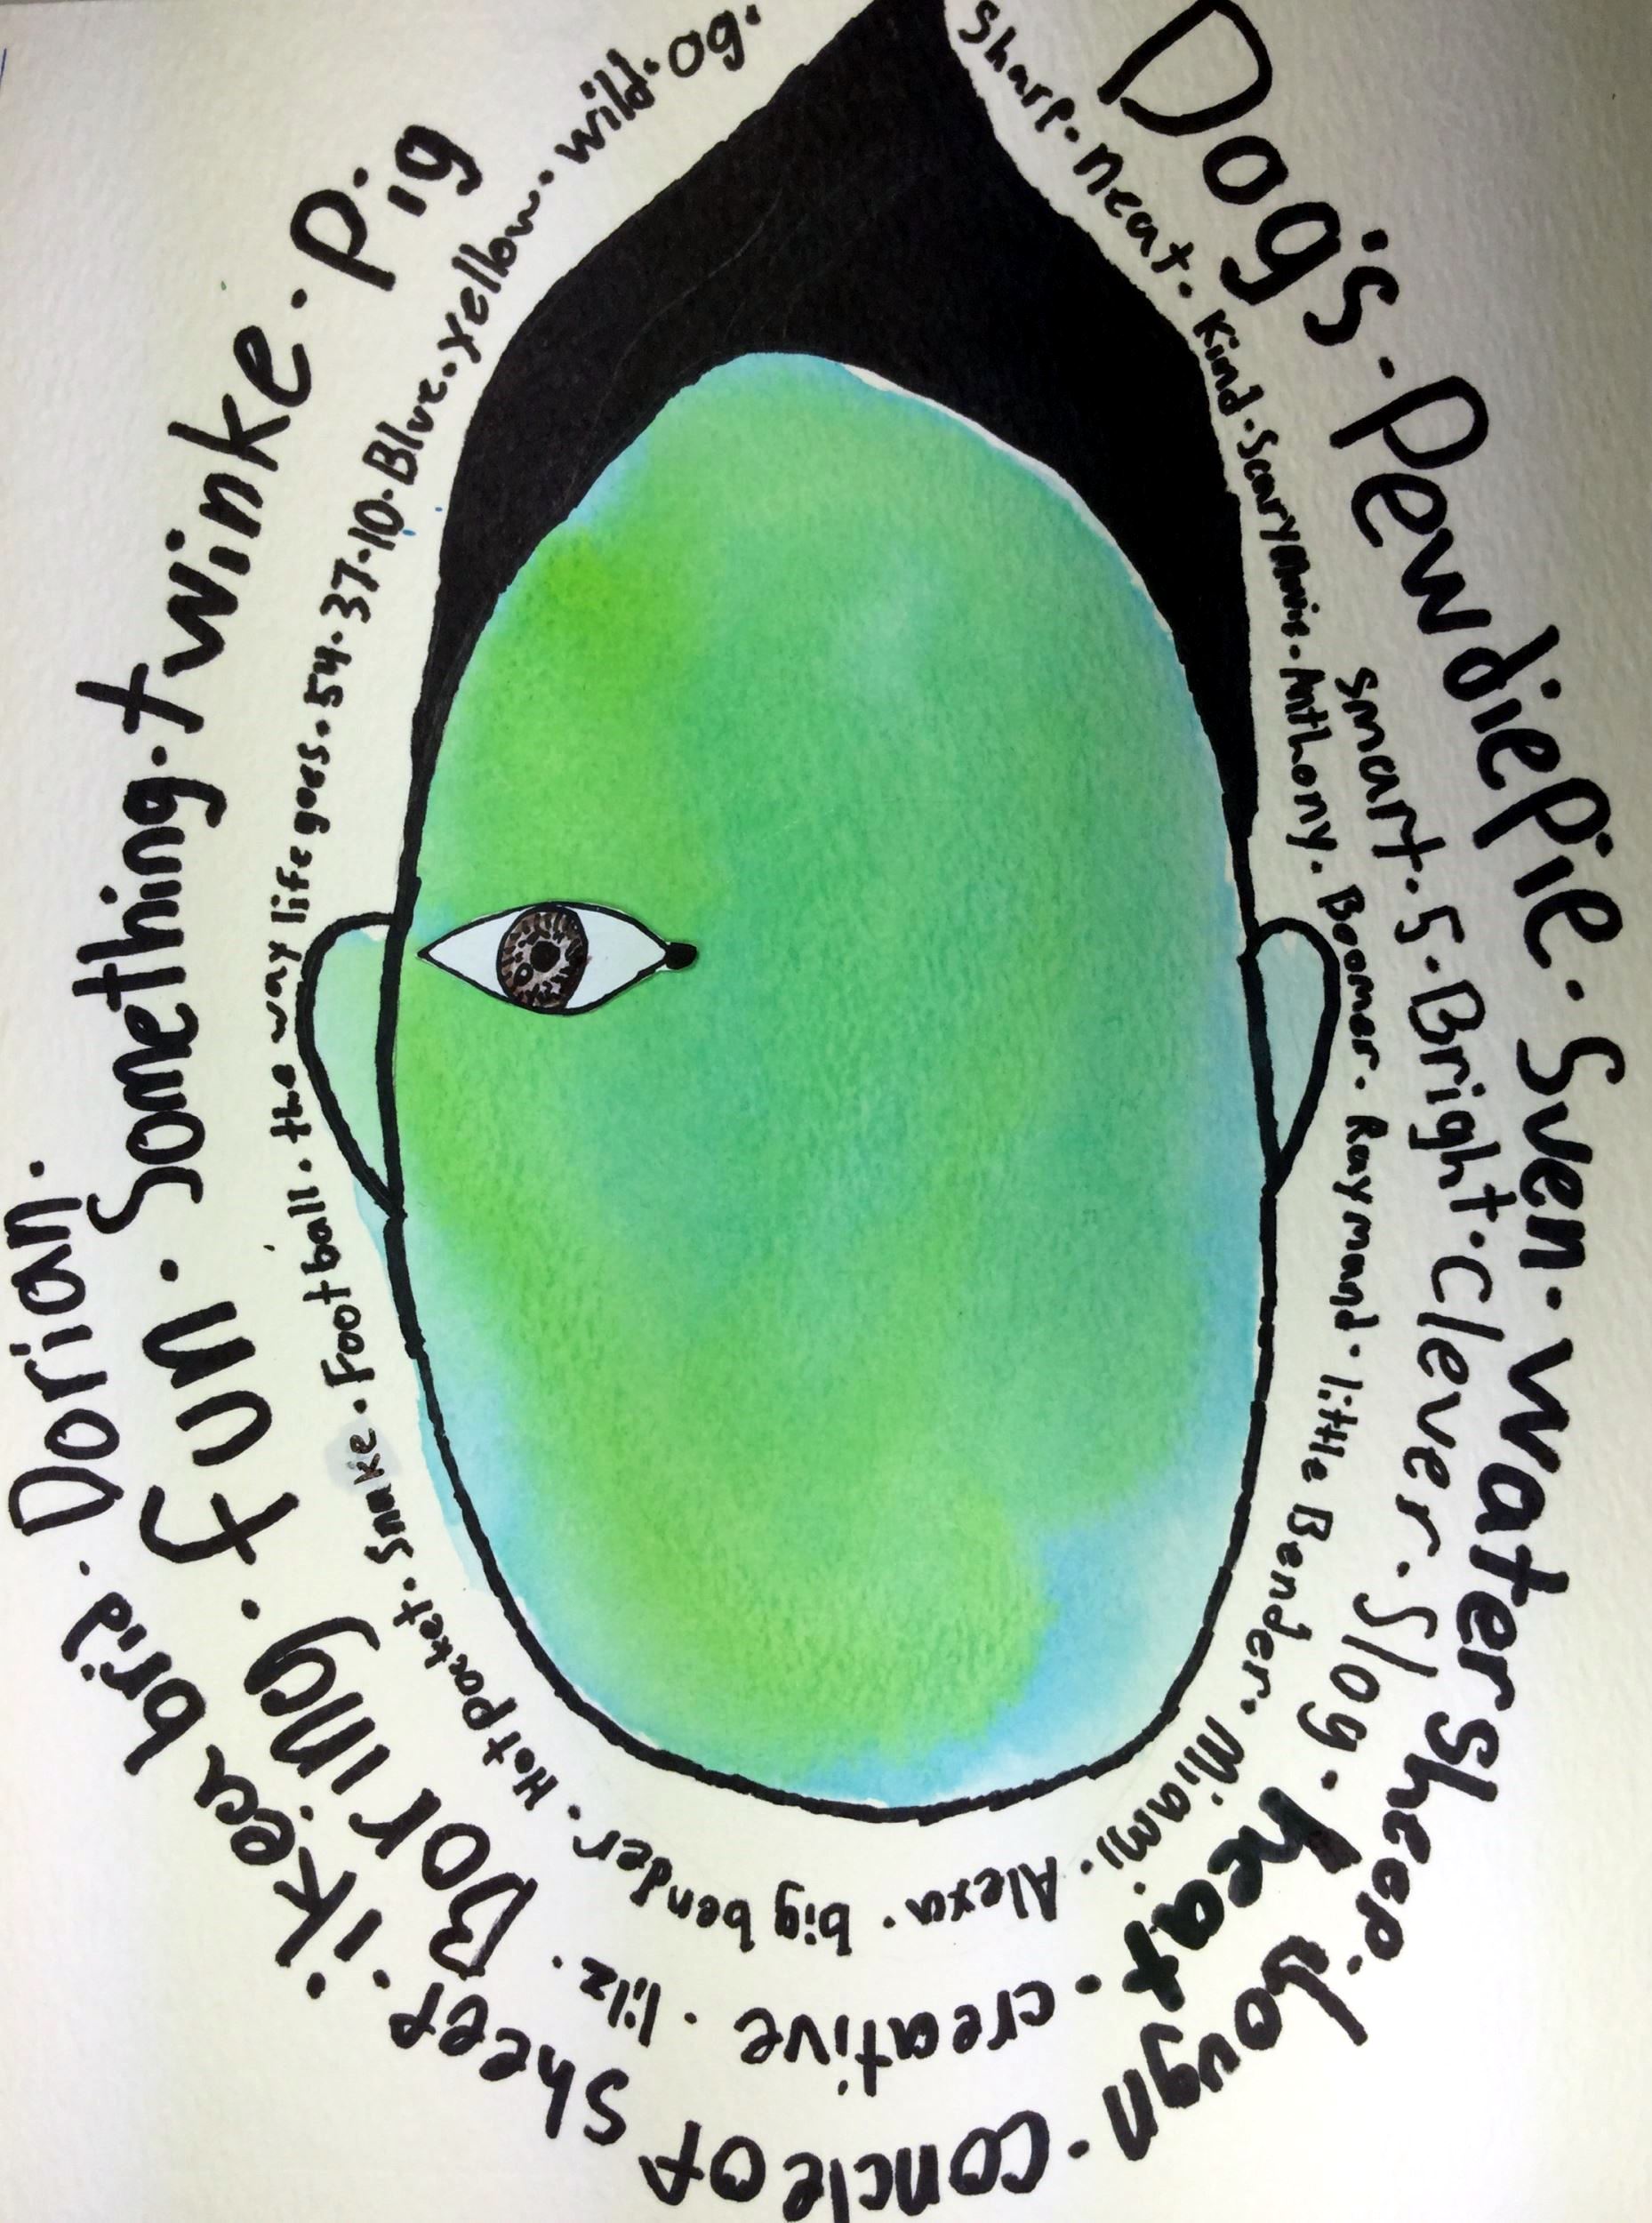 Dog's · Pewdiepie · Sven · water sheep · Jovgn · concle of sheep · ikea brid · Dorian ·
smart · 5 · Bright · Clever · Slog · heat · creative · lilz · Boring · Fun · Something · twinke · Pig
Sharp · neat · Kind · Scary Movie · Anthony · Boomer · Raymond · little Bender · Miami · Alexa · big bender · Hot pocket · Snake · Football · the way life goes · 54 · 37 · 10 · Blue · Yellow · wild · OG ·